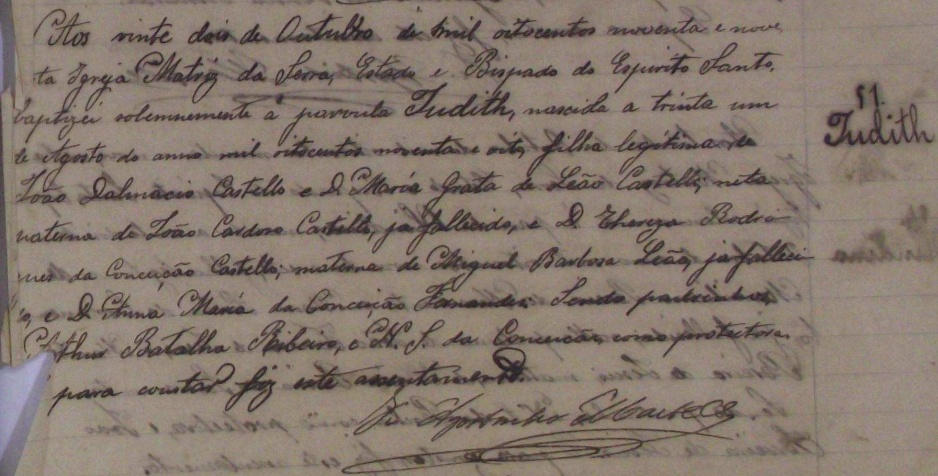 Aos vinte dois de Outubro de mil oitocentos noventa e nove,
ta Igreja Matriz da Serra, Estado e Bispado do Espirito Santo,
baptizei solemnemente a parvula Judith, nascida a trinta um
de Agosto do anno mil oitocentos noventa e oito, filha legitima de
João Dalmacio Castello e D. Maria Grata de Leão Castello; neta
paterna de João Cardoso Castello, já fallecido, e D. Thereza Rodri-
gues da Conceição Castello; materna de Miguel Barbosa Leão, já falleci-
do, e D. Anna Maria da Conceição Fernandes. Sendo padrinhos,
Arthur Batalha Ribeiro, e N. S. da Conceição, como protectora.
para constar fiz este assentamento.
51
Judith